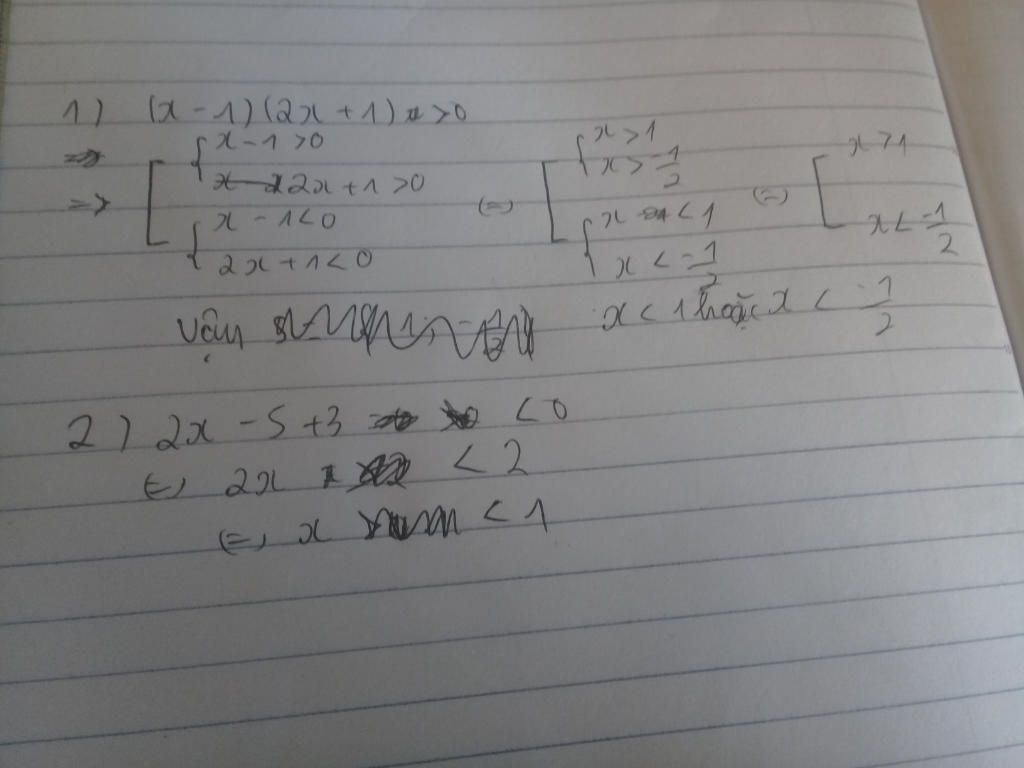 1) (x - 1)(2x + 1) > 0
=> [ { x - 1 > 0
2x + 1 > 0
{ x - 1 < 0
2x + 1 < 0
(=) [ { x > 1
x > -1/2
{ x < 1
x < -1/2
(=) [ x > 1
x < -1/2
Vậy x < 1 hoặc x < -1/2
2) 2x - 5 + 3 < 0
(=) 2x < 2
(=) x < 1